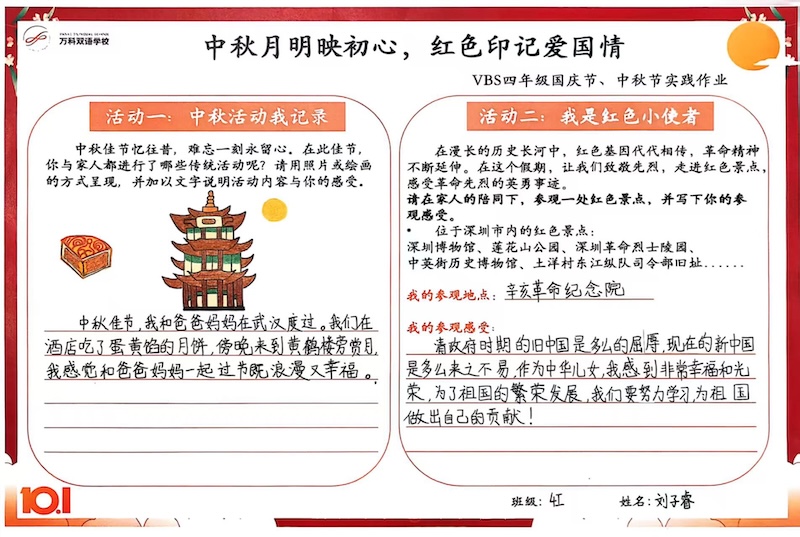 万科双语学校
中秋月明映初心，红色印记爱国情
VBS四年级国庆节、中秋节实践作业
活动一：中秋活动我记录
中秋佳节忆往昔，难忘一刻永留心。在此佳节，
你与家人都进行了哪些传统活动呢？请用照片或绘画
的方式呈现，并加以文字说明活动内容与你的感受。
中秋佳节，我和爸爸妈妈在武汉度过。我们在
酒店吃了蛋黄馅的月饼，傍晚来到黄鹤楼旁赏月，
我感觉和爸爸妈妈一起过节既浪漫又幸福。
活动二：我是红色小使者
在漫长的历史长河中，红色基因代代相传，革命精神
不断延伸。在这个假期，让我们致敬先烈，走进红色景点，
感受革命先烈的英勇事迹。
请在家人的陪同下，参观一处红色景点，并写下你的参
观感受。
• 位于深圳市内的红色景点：
深圳博物馆、莲花山公园、深圳革命烈士陵园、
中英街历史博物馆、土洋村东江纵队司令部旧址......
我的参观地点：辛亥革命纪念院
我的参观感受：
清政府时期的旧中国是多么的屈辱，现在的新中国
是多么来之不易，作为中华儿女，我感到非常幸福和光
荣，为了祖国的繁荣发展，我们要努力学习，为祖国
做出自己的贡献！
10.1
班级：4E 姓名：刘子睿